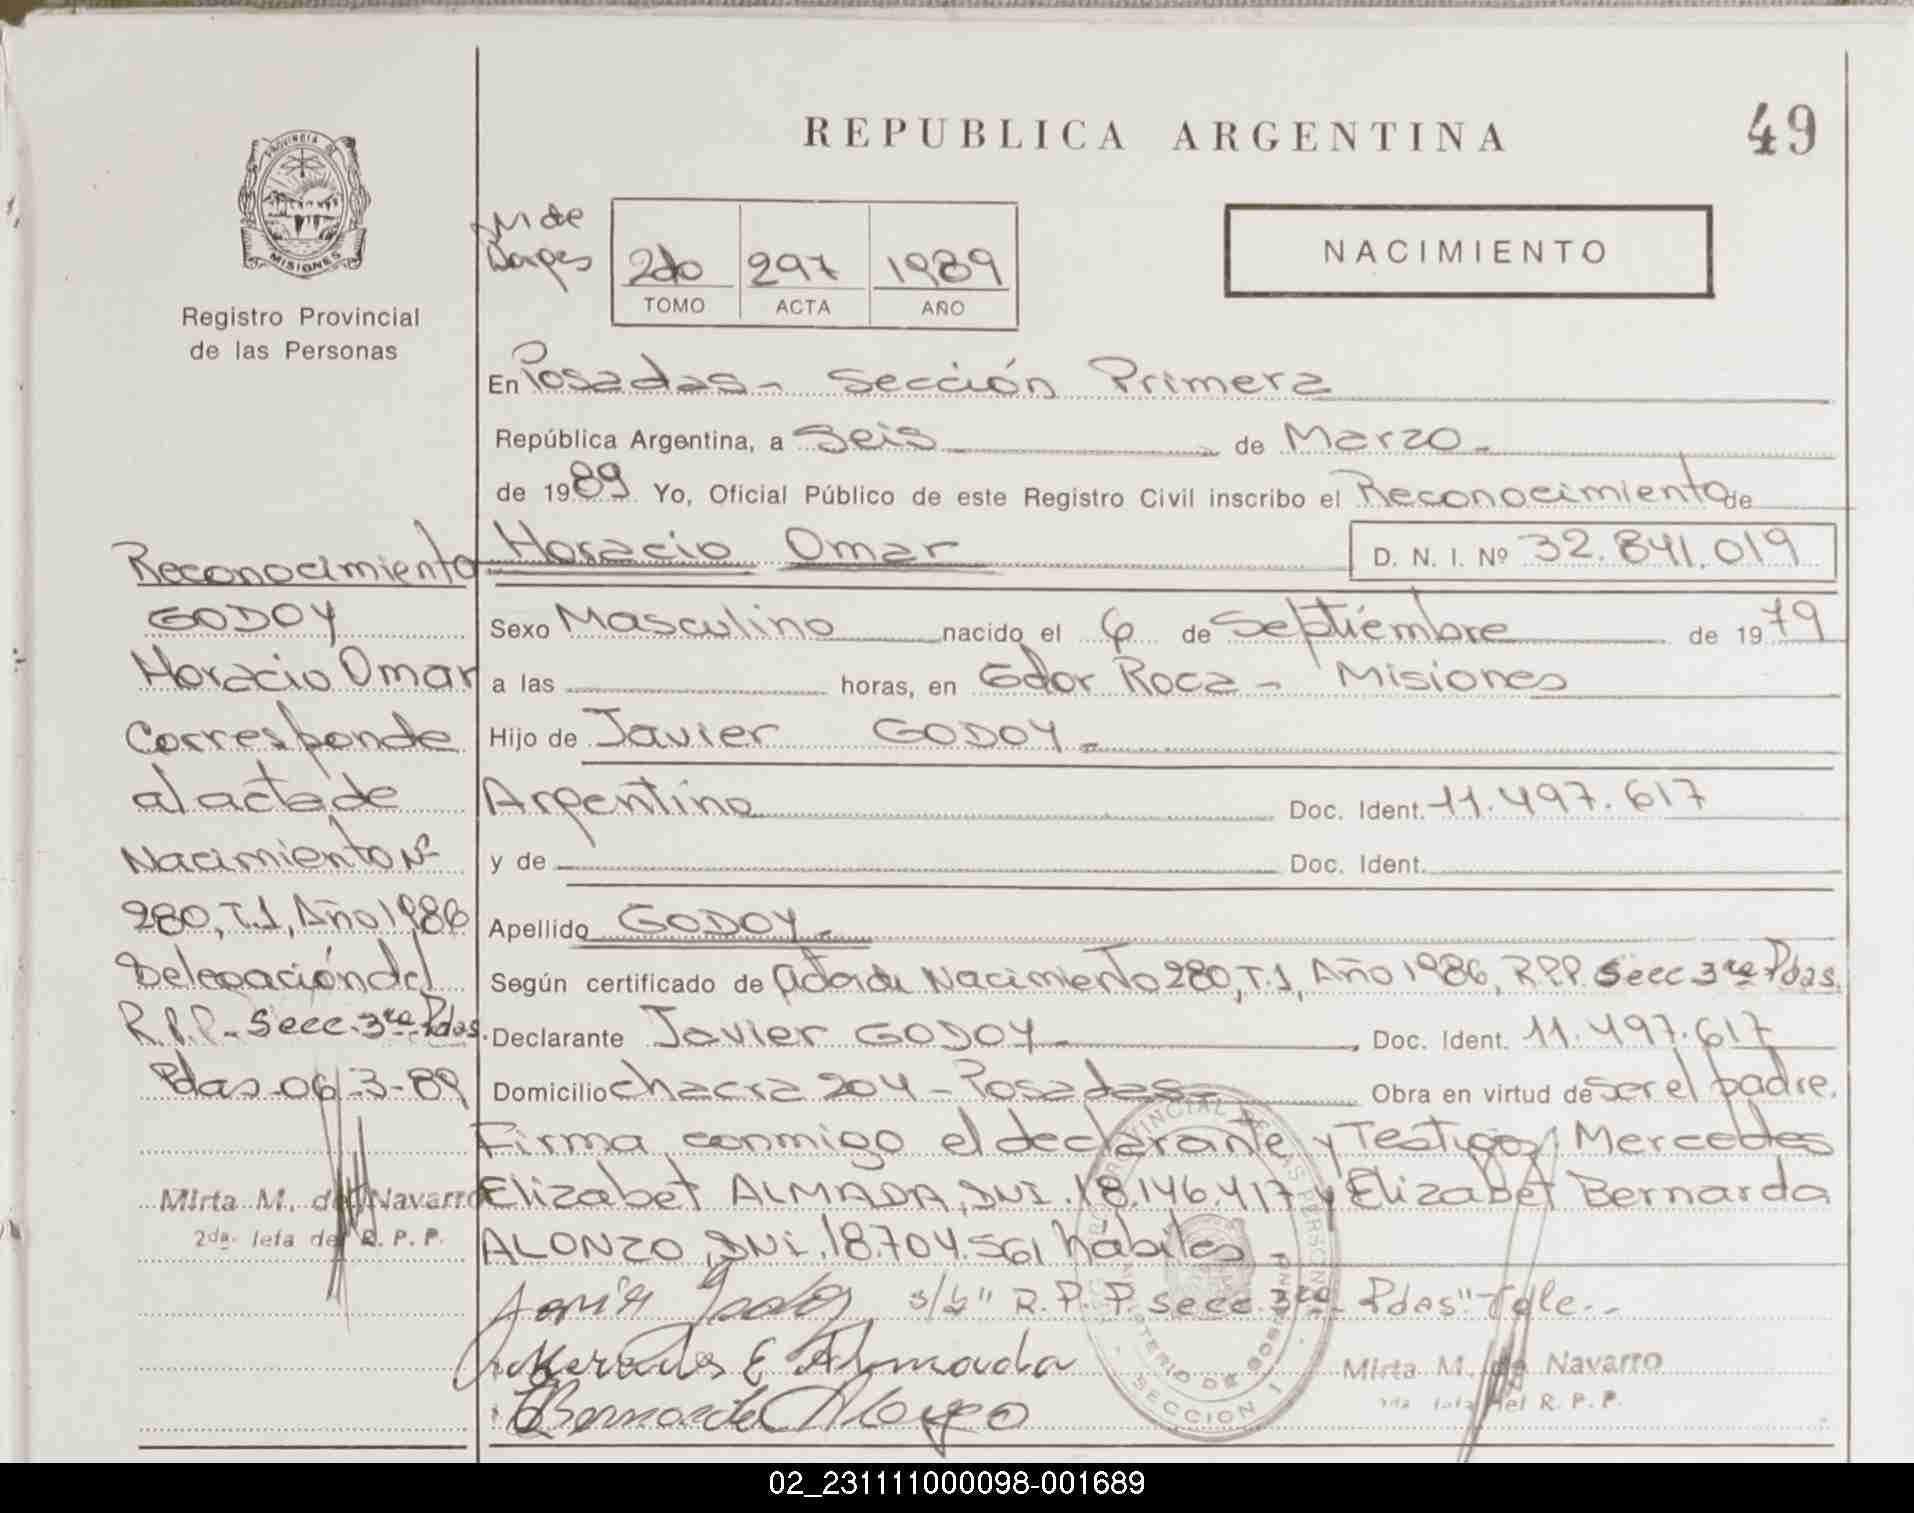 REPUBLICA ARGENTINA
49
PROVINCIA DE
MISIONES
Registro Provincial
de las Personas
M de
2do
TOMO
297
ACTA
1989
AÑO
NACIMIENTO
En Posadas - Sección Primera
República Argentina, a Seis de Marzo.
de 1989 Yo, Oficial Público de este Registro Civil inscribo el Reconocimiento de
Horacio Omar D. N. I. Nº 32.841.019
Sexo Masculino nacido el 6 de Septiembre de 1979
a las horas, en Gdor Roca - Misiones
Hijo de Javier GODOY.
Argentino Doc. Ident. 11.497.617
y de Doc. Ident.
Apellido GODOY.
Según certificado de acta de Nacimiento 280, T.1, Año 1986, R.P.P. Secc 3ra Pdas.
Declarante Javier GODOY. Doc. Ident. 11.497.617
Domicilio chacra 204 - Posadas Obra en virtud de ser el padre.
Firma conmigo el declarante y Testigos Mercedes
Elizabet ALMADA, DNI. 18.146.417 y Elizabet Bernarda
ALONZO, DNI. 18.704.561 hábiles -
s/b" R.P.P. secc. 3ra Pdas" Vale.-
Mercedes E Almada
Bernarda Alonzo
Mirta M. de Navarro
del R. P. P.
SECCION 1
Reconocimiento
GODOY
Horacio Omar
Corresponde
al acta de
Nacimiento Nº
280, T.1, Año 1986
Delegación del
R.P.P. - Secc. 3ra Pdas.
Pdas 06-3-89
Mirta M. de Navarro
2da. Jefa del R. P. P.
02_231111000098-001689